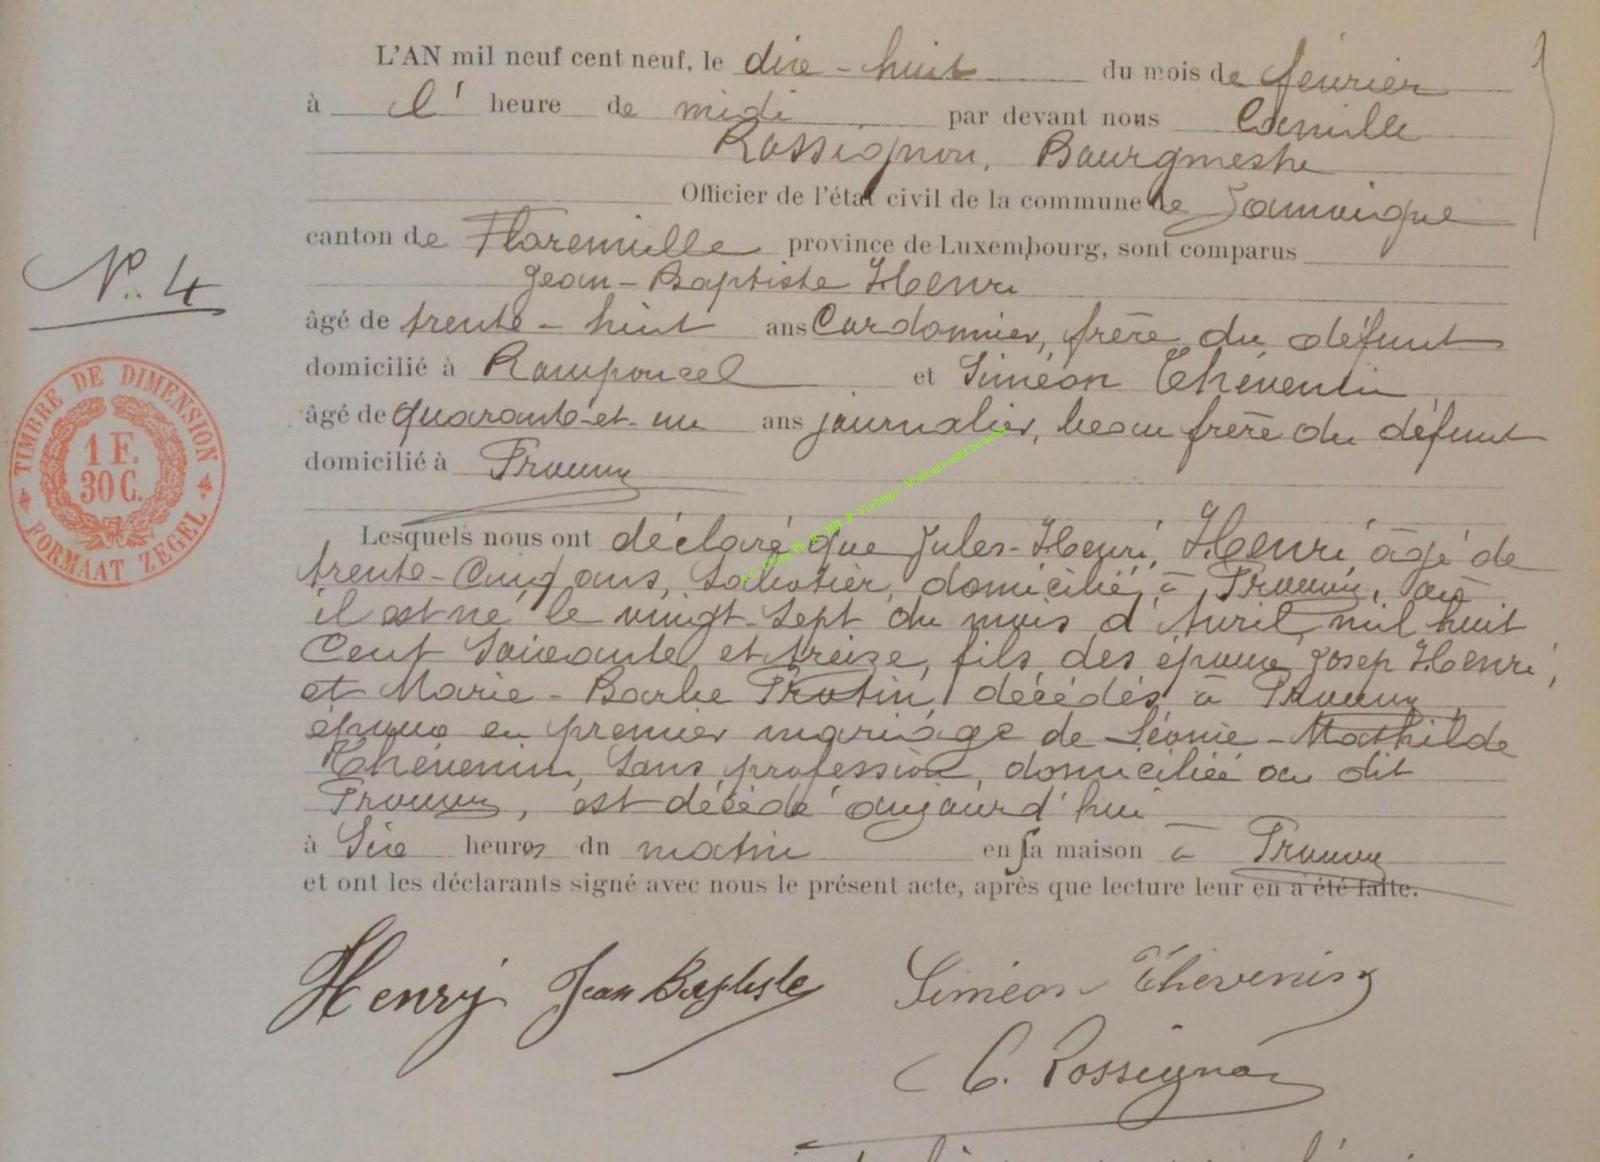 L'AN mil neuf cent neuf, le dix-huit du mois de février
à l' heure de midi par devant nous Camille
Rossignon, Bourgmestre
Officier de l'état civil de la commune de Jamoigne
canton de Florenville province de Luxembourg, sont comparus
Jean-Baptiste Henri
N°. 4
âgé de trente-huit ans Cordonnier, frère du défunt
domicilié à Romponcel et Siméon Thévenin
âgé de quarante-et-un ans journalier, beau frère du défunt
domicilié à Prouvy
TIMBRE DE DIMENSION
1 F.
30 C.
FORMAAT ZEGEL
Lesquels nous ont déclaré que Jules-Henri, Henri âgé de
trente-Cinq ans, Sabotier, domicilié à Prouvy, où
il est né le vingt-Sept du mois d'Avril mil huit
Cent Soixante et treize, fils des époux Josep Henri,
et Marie-Barbe Protin, décédés à Prouvy
époux en premier mariage de Léonie-Mathilde
Thévenin, Sans profession, domiciliée au dit
Prouvy, est décédé aujourd'hui
à Six heures du matin en sa maison à Prouvy
et ont les déclarants signé avec nous le présent acte, après que lecture leur en a été faite.
Henry Jean Baptiste Siméon Thévenin
C. Rossignon